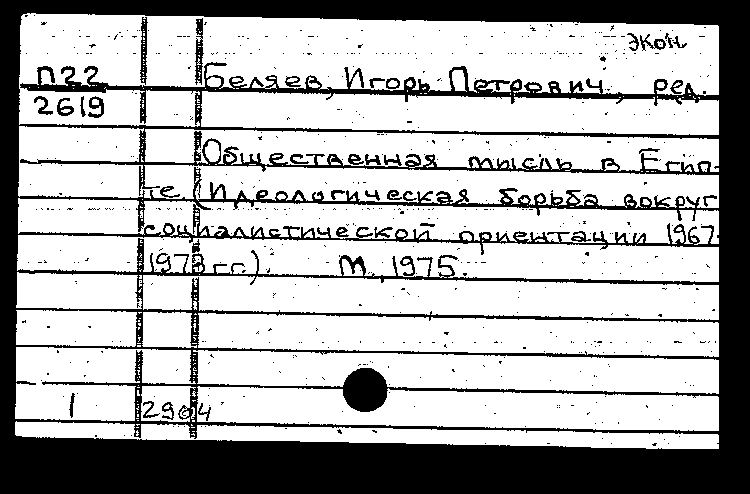 экон.
П22 Беляев, Игорь Петрович, ред.
2619
Общественная мысль в Егип-
те (Идеологическая борьба вокруг
социалистической ориентации 1967-
1973 гг). М., 1975.
1 2904